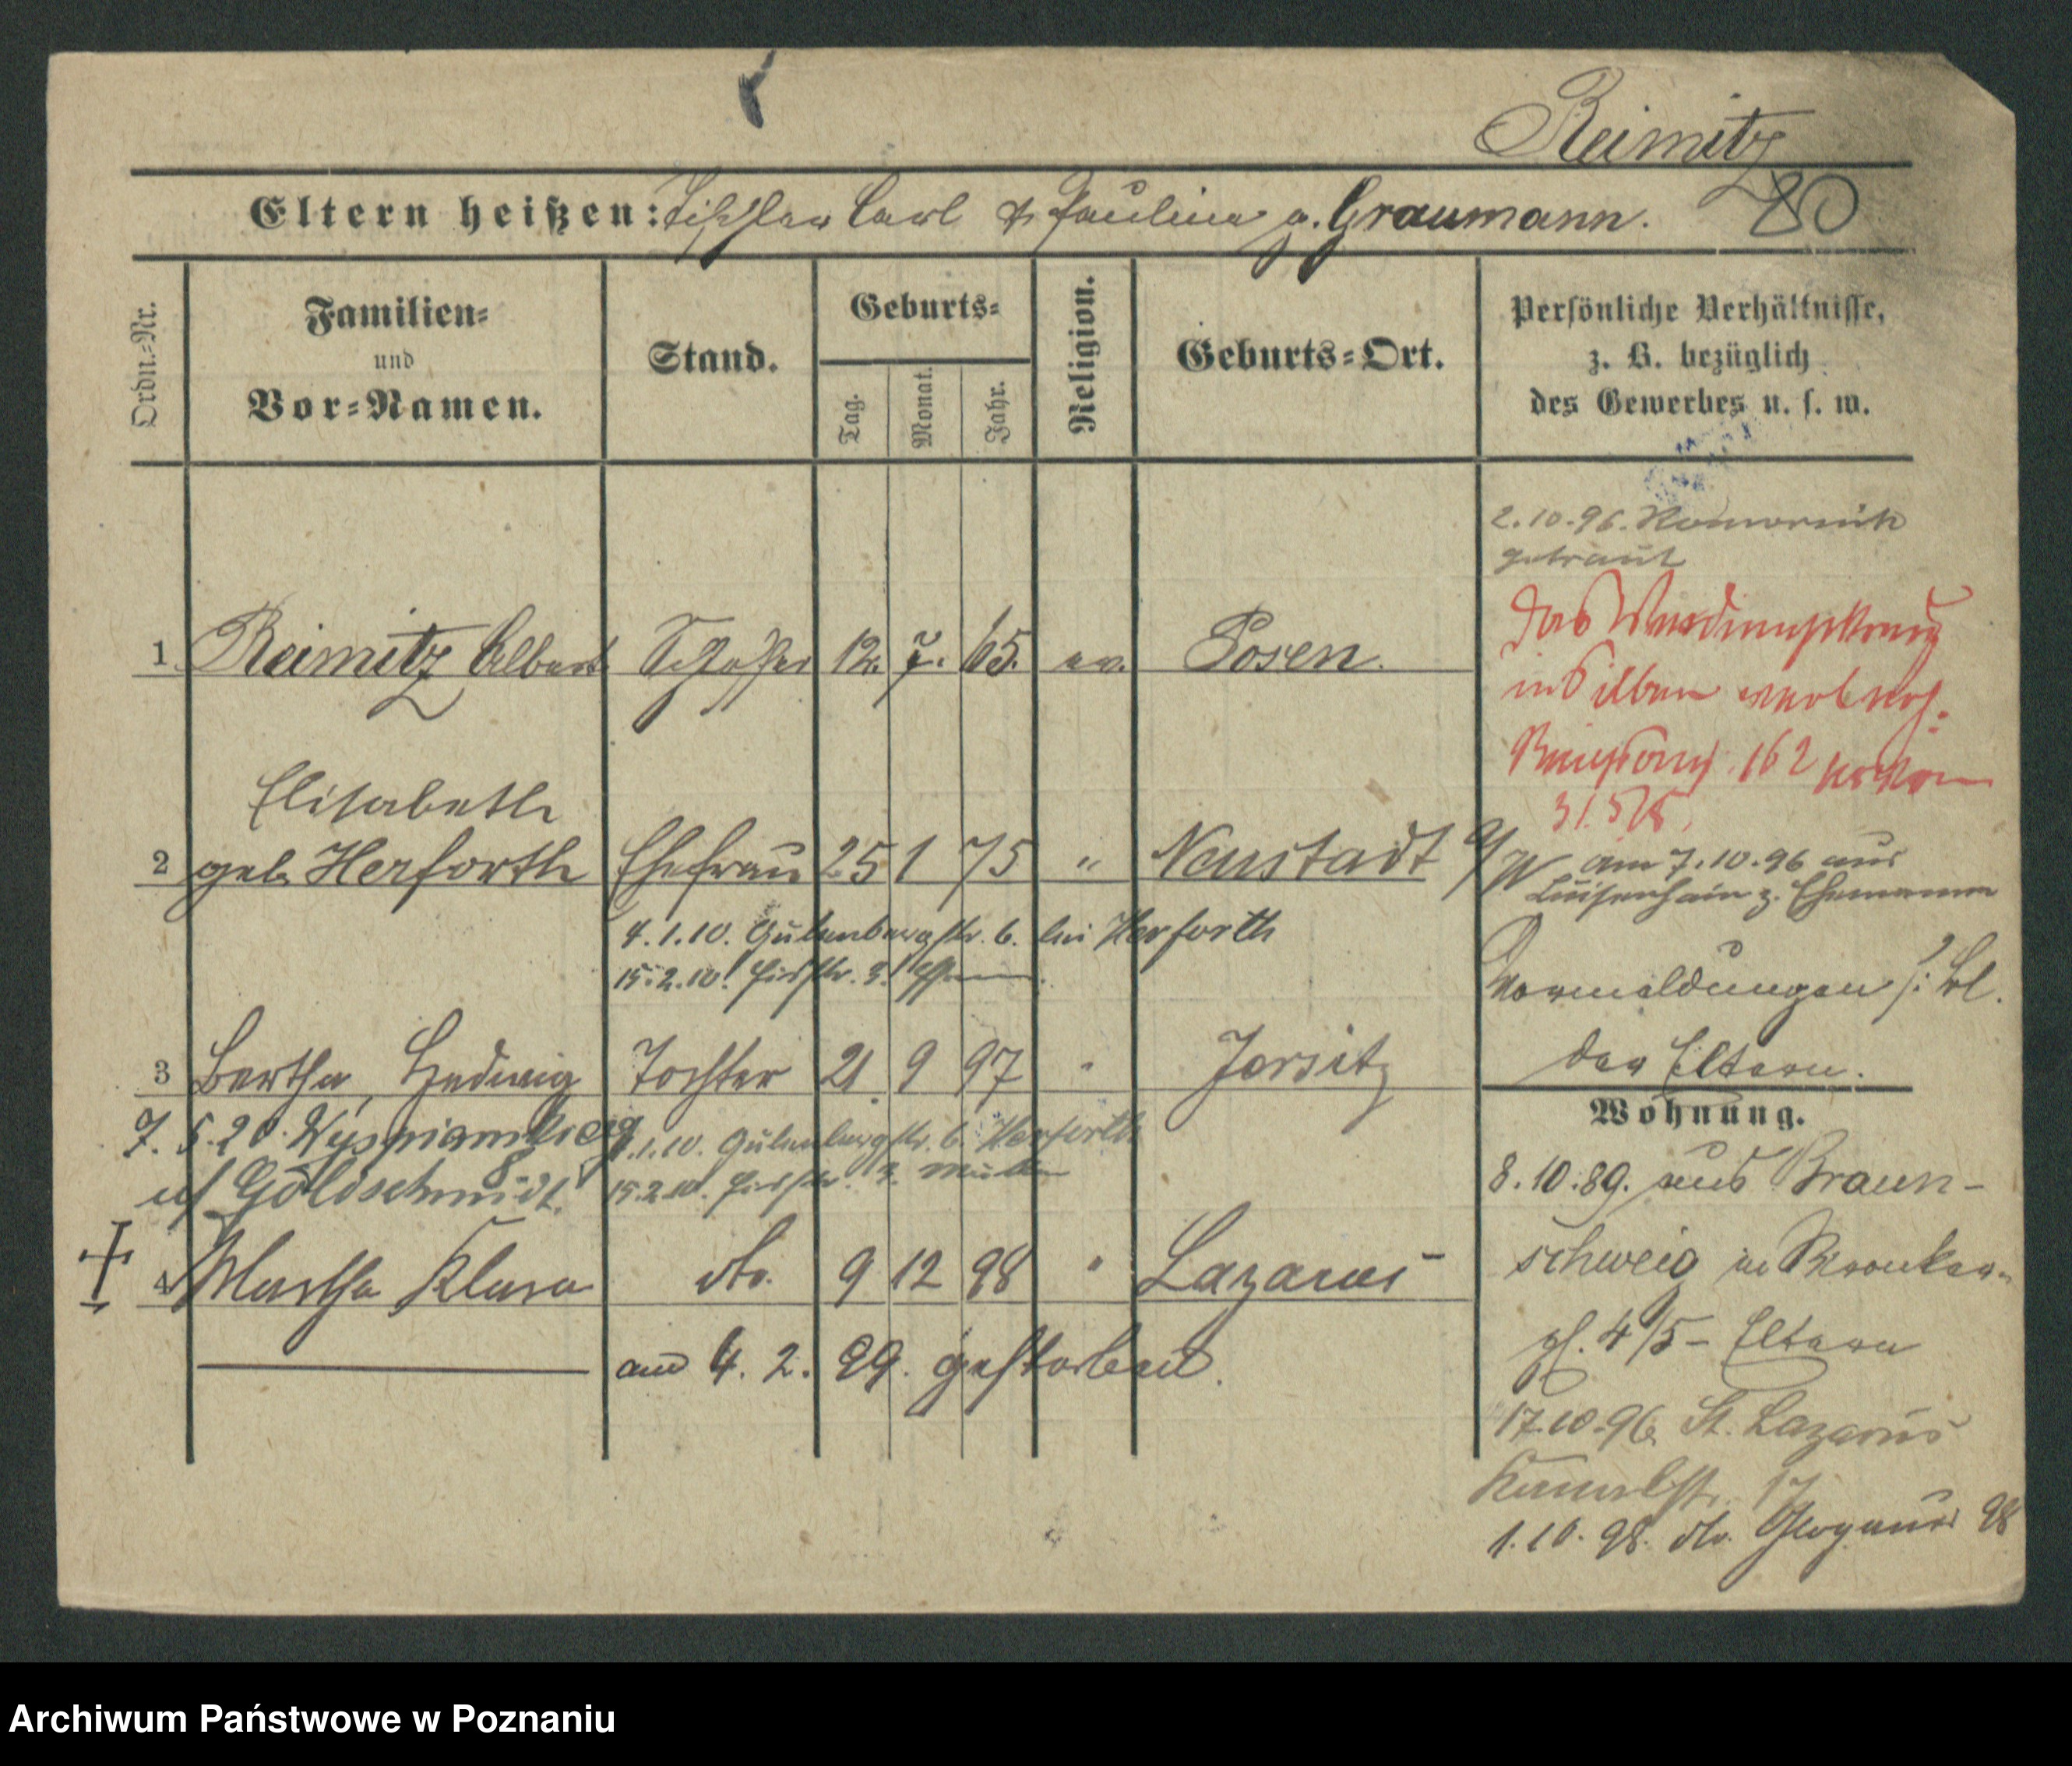 Reimitz
80
Eltern heißen: Tischler Carl & Pauline g. Graumann.
Ordn.-Nr.
Familien-
und
Vor-Namen.
Stand.
Geburts-
Tag.
Monat.
Jahr.
Religion.
Geburts-Ort.
Persönliche Verhältnisse,
z. B. bezüglich
des Gewerbes u. s. w.
2.10.96. Komornik
getraut
1 Reimitz Albert Schlosser 12. 7. 65. ev. Posen.
das
in Silben
162
31.5
Elisabeth
2 geb Herforth Ehefrau 25 1 75 " Neustadt a/W
am 7.10.96 aus
Luisenhain z. Ehemann
4.1.10. Gutenbergstr. 6. bei Herforth
15.2.10.
Vormeldungen s. Bl.
der Eltern.
3 Bertha, Hedwig Tochter 21. 9 97 " Jersitz
7.5.20. Wyspianskieg
1.1.10. Gutenbergstr. 6. Herforth
Goldschmidt.
15.2.10. Mutter
Wohnung.
8.10.89. aus Braun-
schweig in Wronker-
pl. 4/5 - Eltern
4 Martha Klara do. 9 12 98 " Lazarus
am 4. 2. 99. gestorben.
17.10.96. St. Lazarus
Kanalstr. 17
1.10.98. do. Glogauer 98
Archiwum Państwowe w Poznaniu